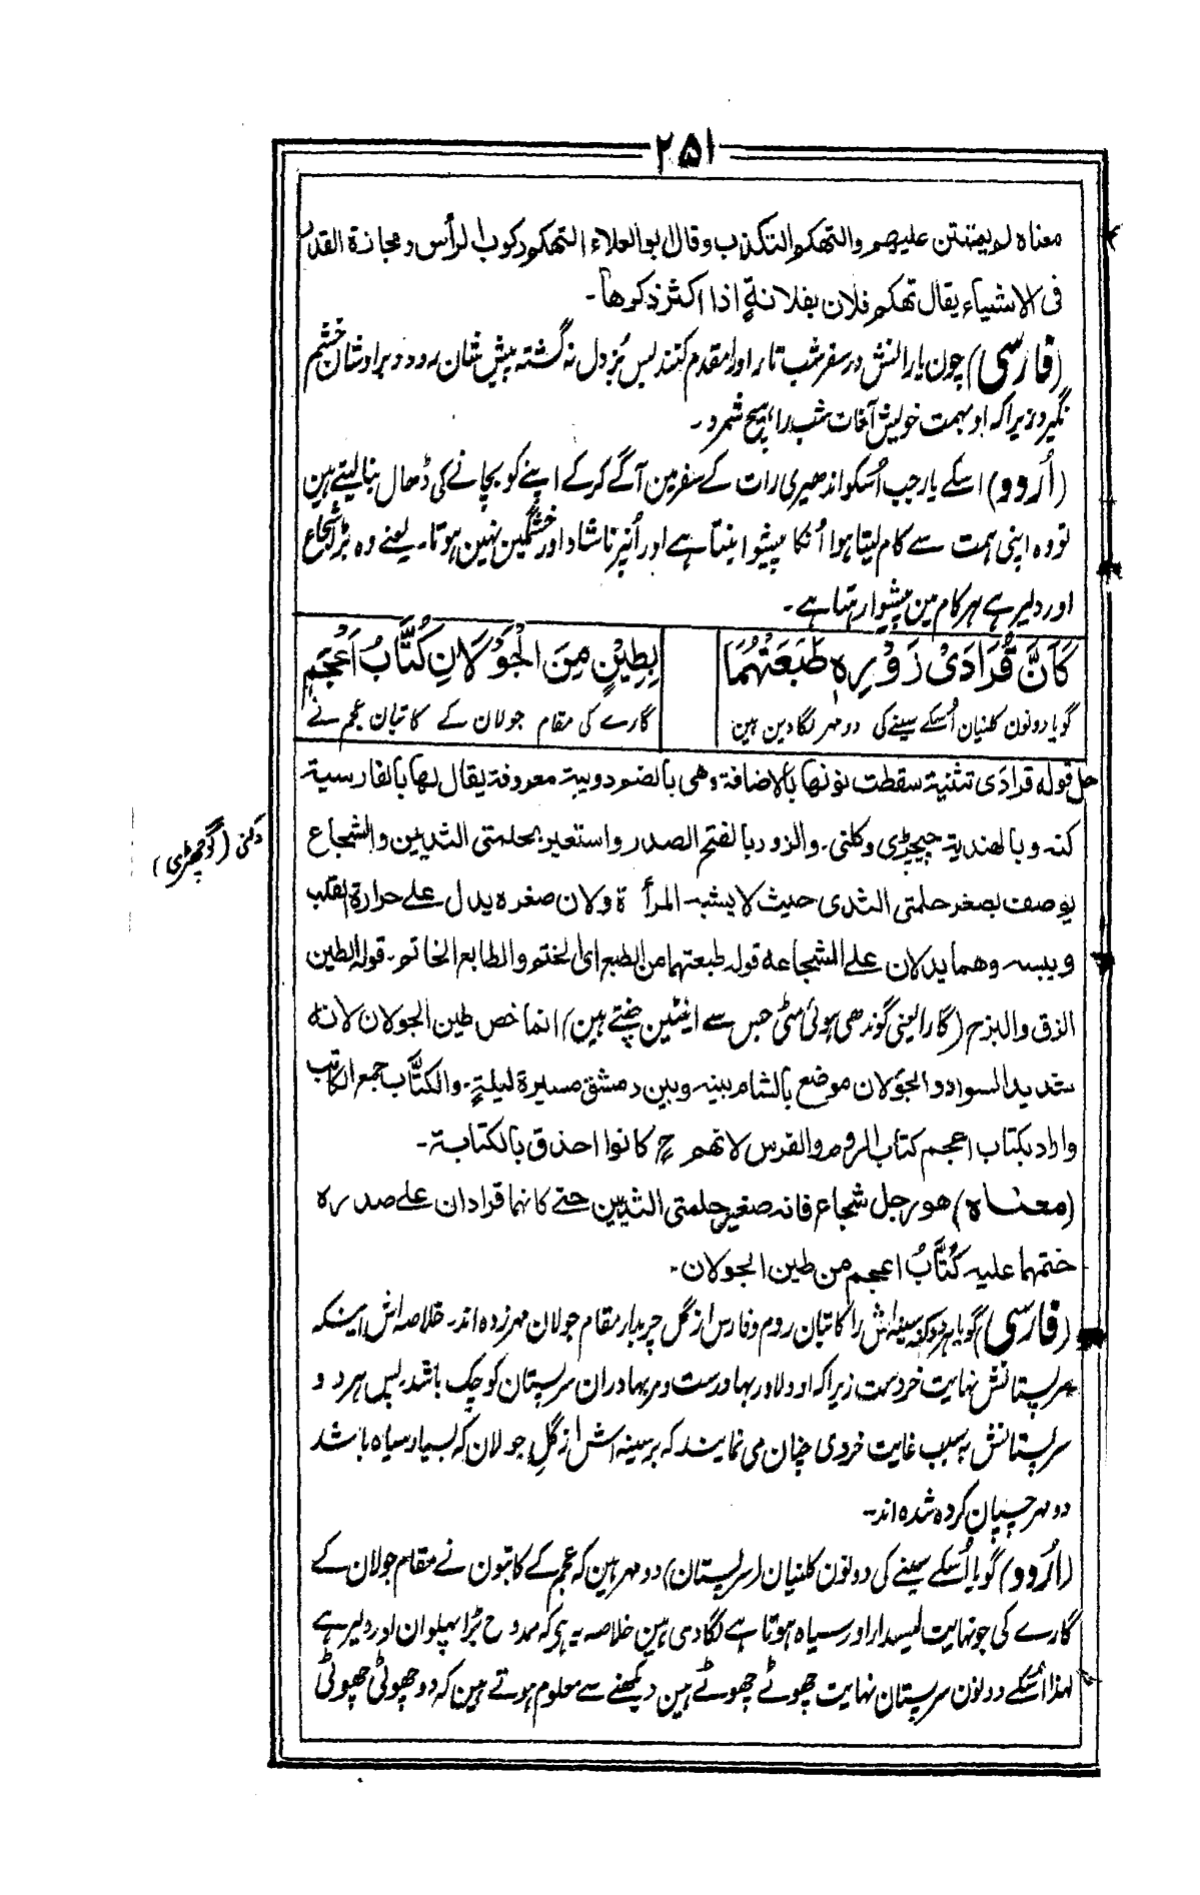 ۲۵۱
معناه لم يمتنن عليهم والتهكم التكذب وقال ابو العلاء التهكم ركوب الرأس ومجازة القدر
فى الاشياء يقال تهكم فلان بفلانةٍ اذا اكثر ذكرها۔
(فارسی) چون یارانش در سفر شب تار او را مقدم کنند پس بُزدل نہ گشتہ پیش شان رود و بر اوشان خشم
نگیرد زیراکہ او بہمت خویش آفات شب را ہیچ شمرد۔
(اُردو) اسکے یار جب اُسکو اندھیری رات کے سفر مین آگے کرکے اپنے کو بچانے کی ڈھال بنا لیتے ہین
تو وہ اپنی ہمت سے کام لیتا ہوا اُنکا پیشوا بنتا ہے اور اُنپر ناشاد اور خشمگین نہین ہوتا۔ یعنے وہ بڑا شجاع
اور دلیر ہے ہر کام مین پیشوا رہتا ہے۔
كَاَنَّ قُرَادَىْ زَوْرِهٖ طَبَعَتْهُمَا
بِطِيْنٍ مِنَ الْجَوْلَانِ كُتَّابُ اَعْجَمِ
گویا دونون کلنیان اُسکے سینے کی دو مہر لگادین ہین
گارے کی مقام جولان کے کاتبان عجم نے
حل قوله قرادَى تثنية سقطت نونها بالاضافة وهى بالضم دويبة معروفة يقال لها بالفارسية
كنه وبالهندية چیچڑی و کلنی۔ والزور بالفتح الصدر واستعير بحلمتى الثديين والشجاع
دکنی (گوچڑی)
يوصف بصغر حلمتى الثدى حيث لا يشبه المرأة ولان صغره يدل على حرارة القلب
ويبسه وهما يدلان على الشجاعه قوله طبعتهما من الطبع اى الختم والطابع الخاتم۔ قوله الطين
الزق والبزح (گارا یعنی گوندھی ہوئی مٹی جس سے اینٹین چنتے ہین) انما خص طين الجولان لانه
شديد السواد والجولان موضع بالشام بينه وبين دمشق مسيرة ليلةٍ۔ والكتّاب جمع الكاتب
واراد بكتاب اعجم كتاب الروم والفرس لانهم ح كانوا احذق بالكتابة۔
(معناه) هو رجل شجاع فانه صغير حلمتى الثديين حتى كانهما قرادان على صدره
ختمهما عليه كُتَّابُ اعجم من طين الجولان۔
(فارسی) گویا ہر دو کنہ سینہ اش را کاتبان روم و فارس از گل چربدار مقام جولان مہر زدہ اند۔ خلاصہ اش اینکہ
سر پستانش نہایت خردست زیراکہ او دلاور بہادرست و مر بہادران سر پستان کوچک باشد پس ہر دو
سر پستانش بہ سبب غایت خردی چنان می نمایند کہ بر سینہ اش از گلِ جولان کہ بسیار سیاہ باشد
دو مہر چسپان کردہ شدہ اند۔
(اُردو) گویا اُسکے سینے کی دونون کلنیان (سر پستان) دو مہر ہین کہ عجم کے کاتبون نے مقام جولان کے
گارے کی جو نہایت لیسدار اور سیاہ ہوتا ہے لگادی ہین خلاصہ یہ ہی کہ ممدوح بڑا پہلوان اور دلیر ہے
لہذا اُسکے دونون سر پستان نہایت چھوٹے چھوٹے ہین دیکھنے سے معلوم ہوتے ہین کہ دو چھوٹی چھوٹی